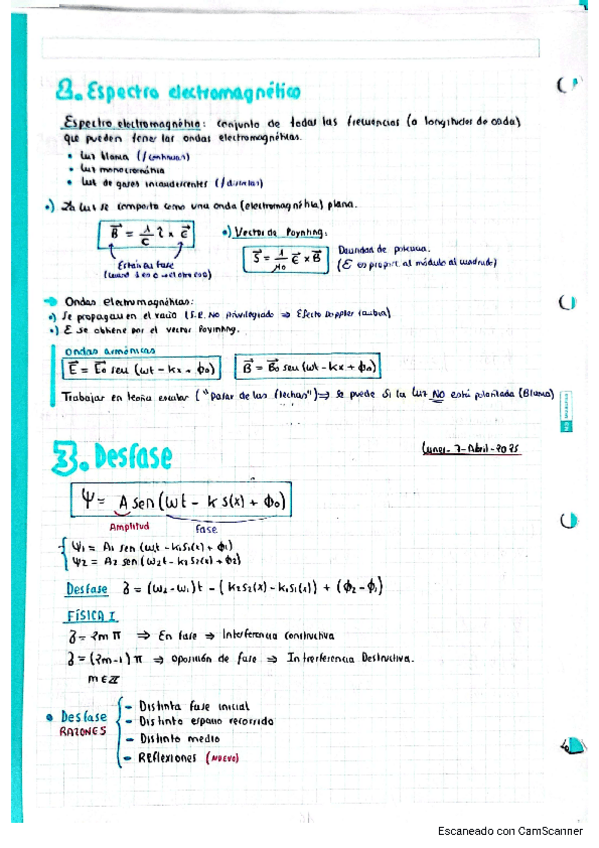 2. Espectro electromagnético
Espectro electromagnético: conjunto de todas las frecuencias (o longitudes de onda)
que pueden tener las ondas electromagnéticas.
• Luz blanca (/continuas)
• Luz monocromática
• Luz de gases incandescentes (/discretas)
•) La luz se comporta como una onda (electromagnética) plana.
B = 1/c û x E
•) Vector de Poynting:
S = 1/μ0 E x B
Densidad de potencia.
(E es proporc. al módulo al cuadrado)
Están en fase
Ondas electromagnéticas:
•) Se propagan en el vacío (S.E. No privilegiado ⇒ Efecto Doppler cambia)
•) E se obtiene por el vector Poynting.
Ondas armónicas
E = E0 sen (wt - kx + ϕ0) B = B0 sen (wt - kx + ϕ0)
Trabajar en teoría escalar ("Pasar de las flechas") ⇒ se puede si la luz NO está polarizada (Blanca)
3. Desfase
Lunes - 7 - Abril - 2025
Ψ = A sen (wt - k s(x) + ϕ0)
Amplitud fase
Ψ1 = A1 sen (w1t - k1s1(x) + ϕ1)
Ψ2 = A2 sen (w2t - k2s2(x) + ϕ2)
Desfase δ = (w2 - w1)t - (k2s2(x) - k1s1(x)) + (ϕ2 - ϕ1)
FÍSICA I
δ = 2m π ⇒ En fase ⇒ Interferencia constructiva
δ = (2m-1) π ⇒ oposición de fase ⇒ Interferencia Destructiva.
m ∈ Z
• Desfase
RAZONES
- Distinta fase inicial
- Distinto espacio recorrido
- Distinto medio
- Reflexiones (NUEVO)
Escaneado con CamScanner